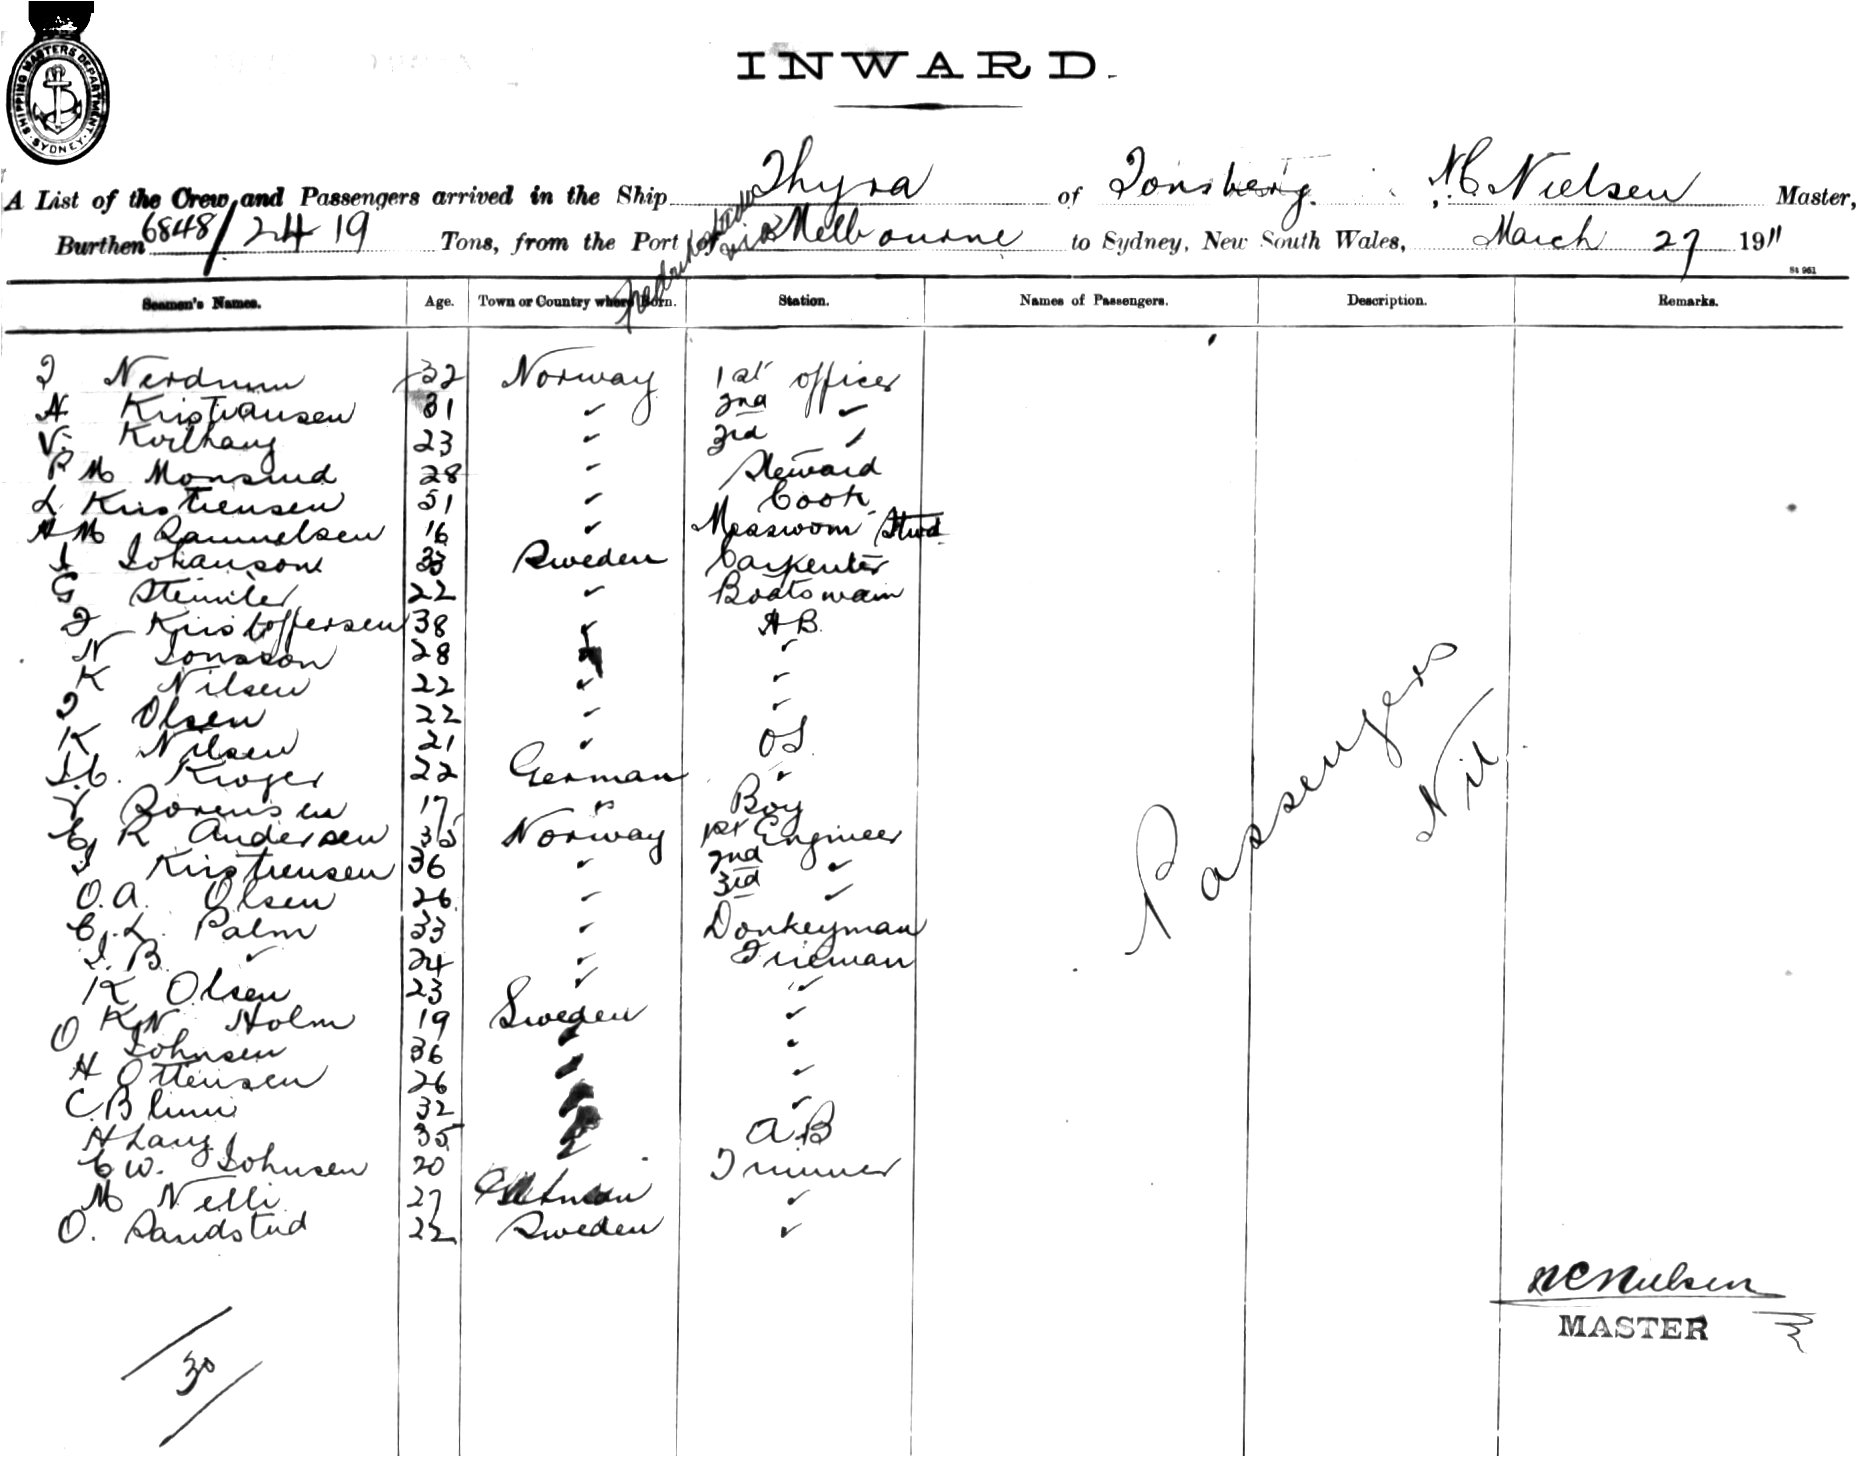 SHIPPING MASTERS DEPARTMENT. SYDNEY.
INWARD.
A List of the Crew and Passengers arrived in the Ship Thyra of Tonsberg. N.C. Nielsen Master,
Burthen 6848/2419 Tons, from the Port of Fredrikstad via Melbourne to Sydney, New South Wales, March 27 1911
St 961
Seamen's Names. Age. Town or Country where Born. Station. Names of Passengers. Description. Remarks.
J Nerdrum 32 Norway 1st officer
A Kristiansen 31 ✓ 2nd ✓
V. Kvilhaug 23 ✓ 3rd ✓
P M Monsrud 28 ✓ Steward
L Kristiensen 51 ✓ Cook
A M Samuelsen 16 ✓ Messroom Stwd
I Johanson 33 Sweden Carpenter
G 22 ✓ Boatswain
J Kristoffersen 38 ✓ AB.
N Jonsson 28 ✓ ✓
K Nilsen 22 ✓ ✓
J Olsen 22 ✓ ✓
K Nilsen 21 ✓ OS
J.C. Kroger 22 German ✓
Y Sorensen 17 " Boy
C R Andersen 35 Norway 1st Engineer
J Kristiensen 36 ✓ 2nd ✓
O.A. Olsen 26 ✓ 3rd ✓
C.L. Palm 33 ✓ Donkeyman
J.B. ✓ 24 ✓ Fireman
K Olsen 23 ✓ ✓
K N Holm 19 Sweden ✓
O Johnsen 36 ✓
H Ottensen 26 ✓
C 32 ✓
H Lang 35 AB
C W. Johnsen 20 Trimmer
M Nelli 27 ✓
O. Sandstud 22 Sweden ✓
Passengers
Nil
NC Nielsen
MASTER
30